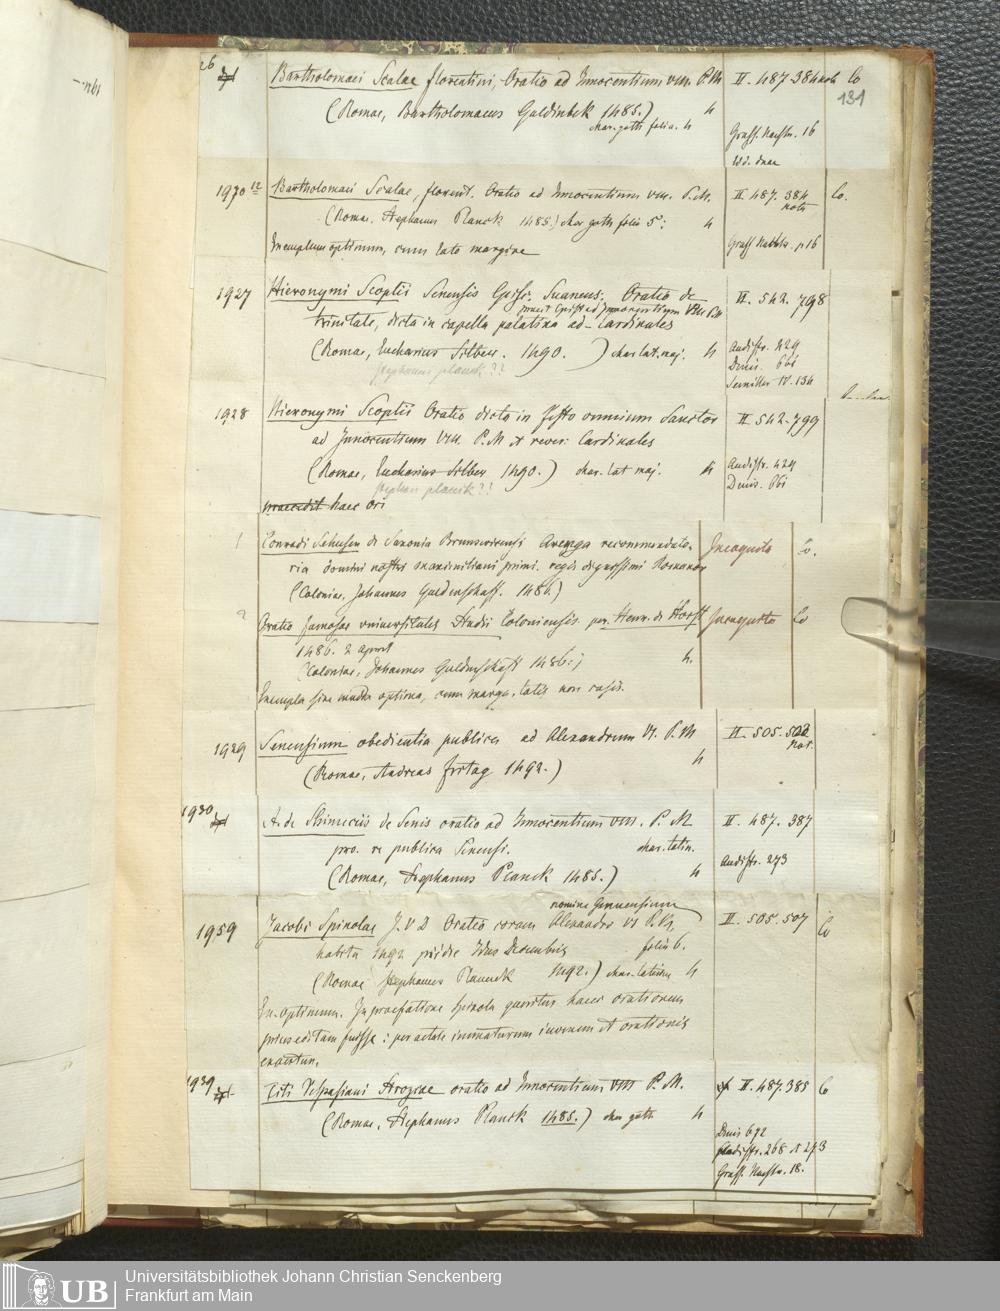 26
Bartholomaei Scalae florentini, Oratio ad Innocentium VIII. P.M II. 487. 384 nob Co
131
(Romae, Bartholomaeus Guldinbek 1485.) 4
char. goth folia. 4
Graff. Nachtr. 16
1930 12 Bartholomaei Scalae, florent. Oratio ad Innocentium VIII. P.M. II 487. 384 Co.
nota
(Romae. Stephanus Planck 1485.) char goth folio 5. 4
Exemplum optimum, cum lato margine p. 16
1927 Hieronymi Scoptii Senensis Oratio de II. 542. 798
VIII P.M
trinitate, dicta in capella palatina ad Cardinales
(Romae, Eucharius Silber. 1490.) char lat. maj. 4 Audiffr. 429
Stephanus planck ??
Denis. 661
134
1928 Hieronymi Scoptii Oratio dicta in festo omnium Sanctor II 542. 799
ad Innocentium VIII. P.M et rever. Cardinales
(Romae, Eucharius Silber 1490.) char. lat maj. 4 Audiffr. 429
Stephan planck ?? Denis. 661
praecedit haec ori
1 Conradi de Saxonia Brunswicensi Arenga recommendato= Incognita Co.
ria domini nostri maximiliani primi. regis dignissimi Romanor
(Coloniae, Johannes Guldenschaff. 1486)
2 Oratio famosae universitatis Studii Coloniensis per. Henr. de Horst Incognita Co
1486. 2 april
(Coloniae, Johannes Guldenschaff 1486.) 4.
Exempla sine macula optima, cum marg. latis non
1929 Senensium obedientia publica ad Alexandrum VI. P. M II. 505. 502
not.
(Romae, Andreas fritag 1492.) 4
1930
A. de de Senis oratio ad Innocentium VIII. P. M II. 487. 387
pro. re publica Senensi. char. latin.
(Romae, Stephanus Planck 1485.) 4 Audiffr. 273
nomine Genuensium
1959 Jacobi Spinolae J.V.D Oratio coram Alexandro VI P.M, II. 505. 507 Co
habita 1492 pridie Idus Decembris folia 6.
(Romae Stephanus Planck 1492.) char. latinu 4
Ex. optimum. In praefatione Spinola queritur hanc orationem
prius editam fuisse: per aetate immaturum iuvenem et orationis
expertum.
1939
Titi Vespasiani Strozae oratio ad Innocentium VIII P. M. II. 487. 385 Co
(Romae, Stephanus Planck 1485.) char goth 4
Denis 672
Audiffr. 268. et 273
Graff. Nachtr. 18.
UB Universitätsbibliothek Johann Christian Senckenberg
Frankfurt am Main